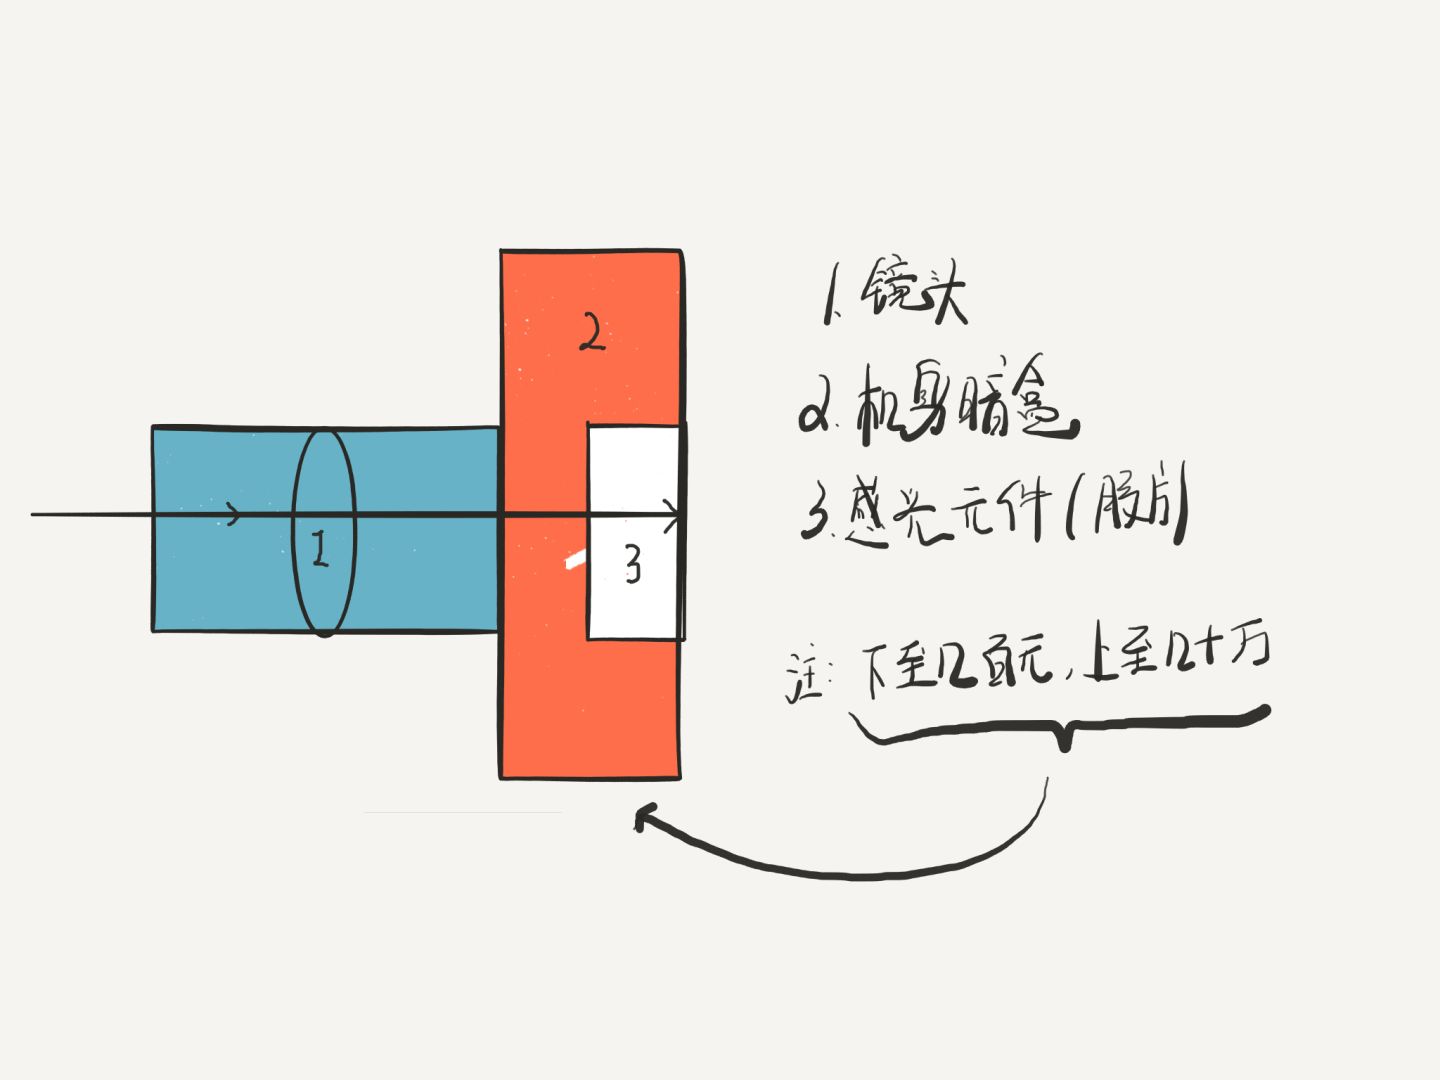 1
2
3
1.镜头
2.机身暗盒
3.感光元件(胶片)
注:下至几百元,上至几十万